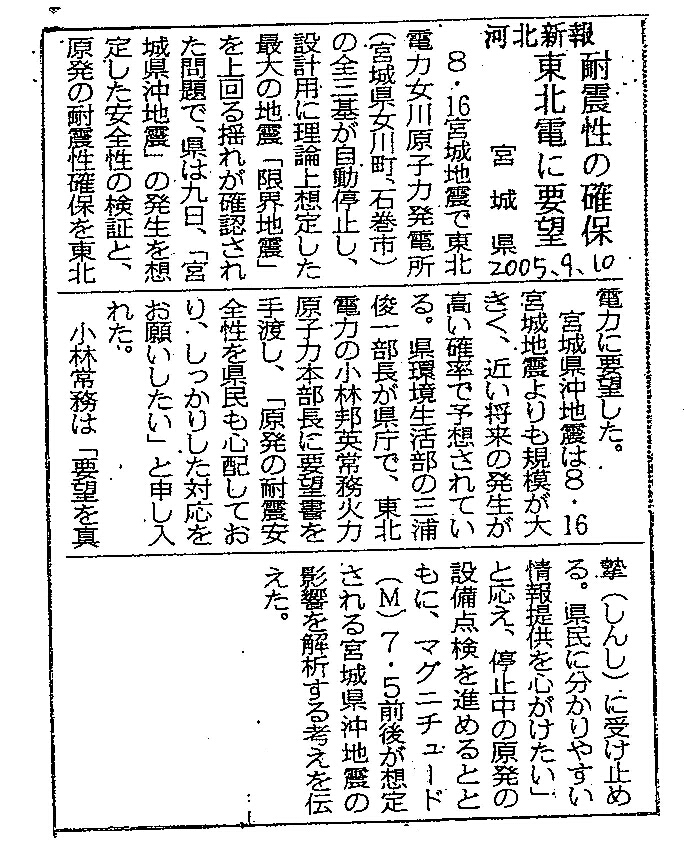 河北新報
2005.9.10
耐震性の確保
東北電に要望
宮城県
8・16宮城地震で東北
電力女川原子力発電所
（宮城県女川町、石巻市）
の全三基が自動停止し、
設計用に理論上想定した
最大の地震「限界地震」
を上回る揺れが確認され
た問題で、県は九日、「宮
城県沖地震」の発生を想
定した安全性の検証と、
原発の耐震性確保を東北
電力に要望した。
宮城県沖地震は8・16
宮城地震よりも規模が大
きく、近い将来の発生が
高い確率で予想されてい
る。県環境生活部の三浦
俊一部長が県庁で、東北
電力の小林邦英常務火力
原子力本部長に要望書を
手渡し、「原発の耐震安
全性を県民も心配してお
り、しっかりした対応を
お願いしたい」と申し入
れた。
小林常務は「要望を真
摯（しんし）に受け止め
る。県民に分かりやすい
情報提供を心がけたい」
と応え、停止中の原発の
設備点検を進めるとと
もに、マグニチュード
（M）7・5前後が想定
される宮城県沖地震の
影響を解析する考えを伝
えた。